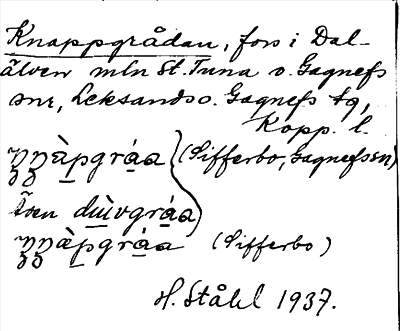 Knappgrådan, fors i Dal-
älven mln St. Tuna o. Gagnefs
snr, Leksands o. Gagnefs tg,
Kopp. l.
àpgráa (Sifferbo, Gagnefs sn)
även dùvgráa
àpgráa (Sifferbo)
H. Ståhl 1937.